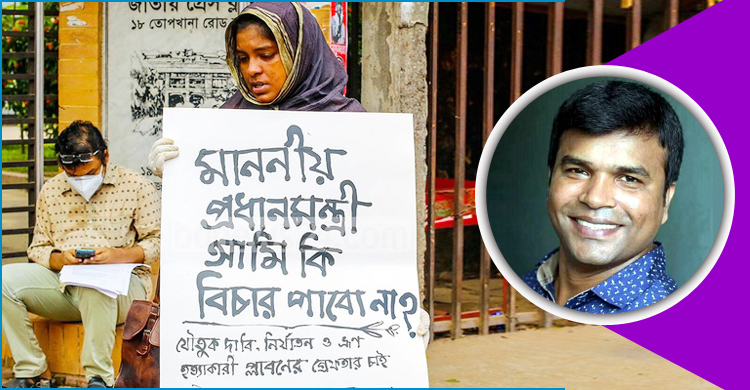 জাতীয় প্রেস ক্লাব
১৮ তোপখানা রোড
মাননীয়
প্রধানমন্ত্রী
আমি কি
বিচার পাবো না?
যৌতুক দাবি, নির্যাতন ও ভ্রূণ
হত্যাকারী প্লাবনের গ্রেফতার চাই